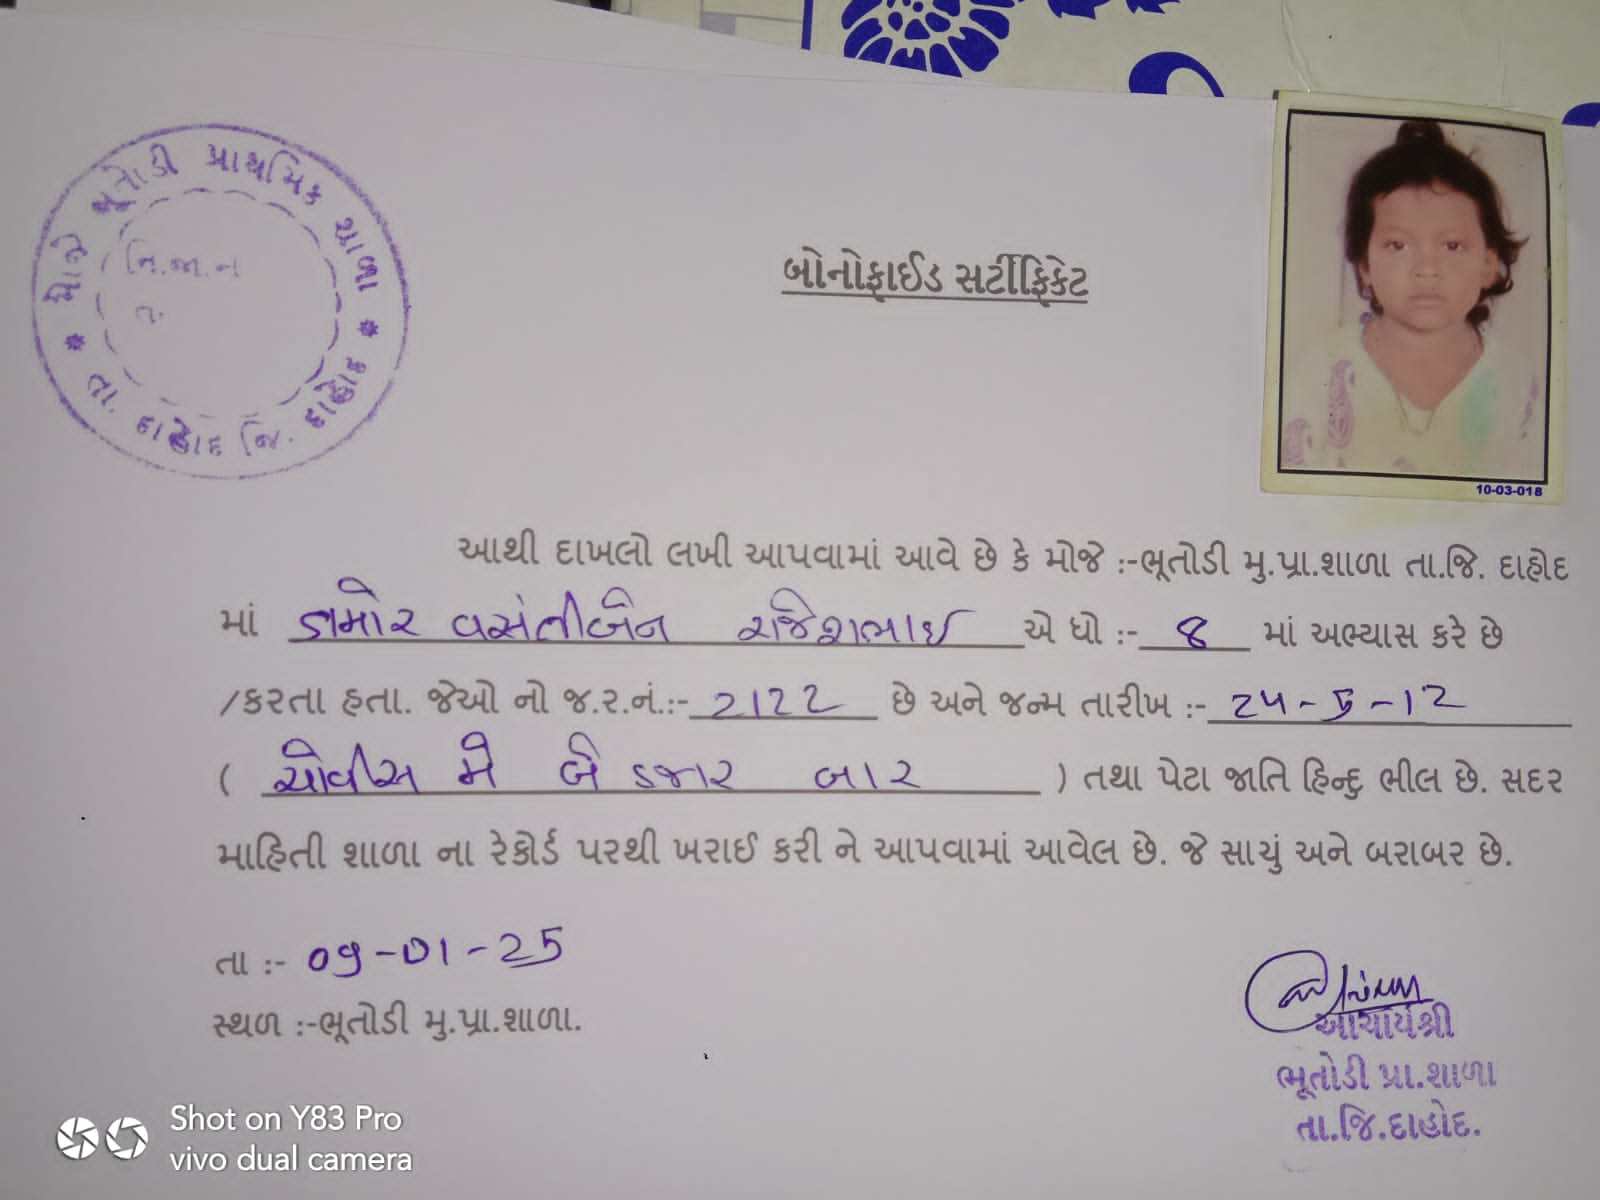 મોજે ભૂતોડી પ્રાથમિક શાળા
* તા. દાહોદ જિ. દાહોદ *
નિ.જા.ન
બોનોફાઈડ સર્ટીફિકેટ
10-03-018
આથી દાખલો લખી આપવામાં આવે છે કે મોજે :-ભૂતોડી મુ.પ્રા.શાળા તા.જિ. દાહોદ
માં ડામોર વસંતીબેન રાજેશભાઇ એ ધો :- 8 માં અભ્યાસ કરે છે
/કરતા હતા. જેઓ નો જ.ર.નં.:- 2122 છે અને જન્મ તારીખ :- 24-5-12
( ચોવીસ મે બે હજાર બાર ) તથા પેટા જાતિ હિન્દુ ભીલ છે. સદર
માહિતી શાળા ના રેકોર્ડ પરથી ખરાઈ કરી ને આપવામાં આવેલ છે. જે સાચું અને બરાબર છે.
તા :- 09-01-25
સ્થળ :-ભૂતોડી મુ.પ્રા.શાળા.
આચાર્યશ્રી
ભૂતોડી પ્રા.શાળા
તા.જિ.દાહોદ.
Shot on Y83 Pro
vivo dual camera